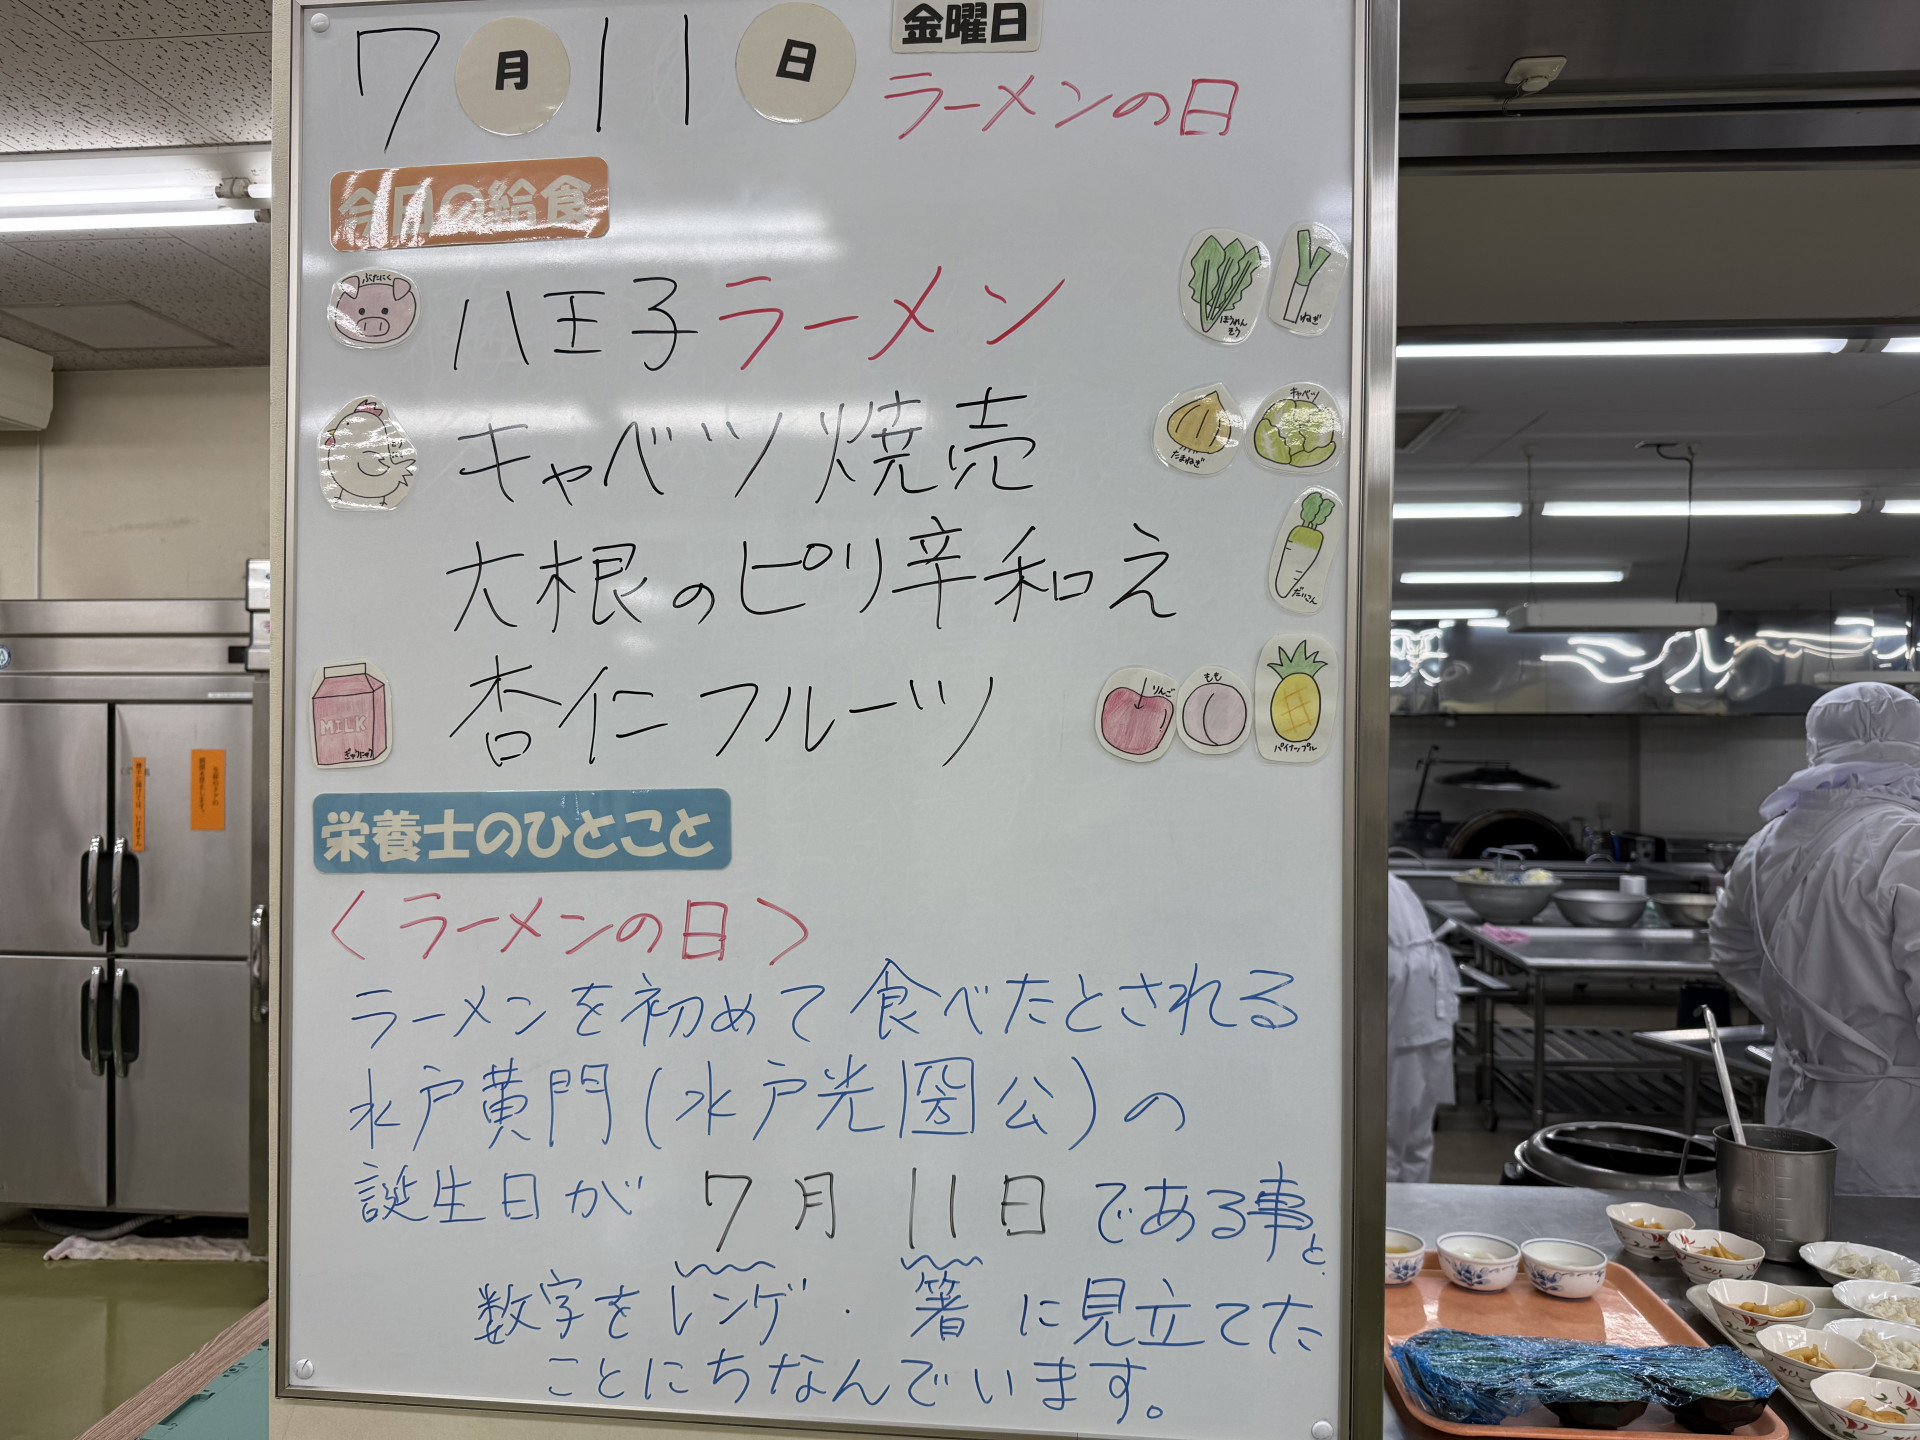 7月11日 金曜日
ラーメンの日
今日の給食
ぶたにく
八王子ラーメン
ほうれんそう
ねぎ
とりにく
キャベツ焼売
たまねぎ
キャベツ
大根のピリ辛和え
だいこん
MILK
ぎゅうにゅう
杏仁フルーツ
りんご
もも
パイナップル
栄養士のひとこと
〈ラーメンの日〉
ラーメンを初めて食べたとされる
水戸黄門(水戸光圀公)の
誕生日が 7月11日である事と
数字をレンゲ・箸に見立てた
ことにちなんでいます。